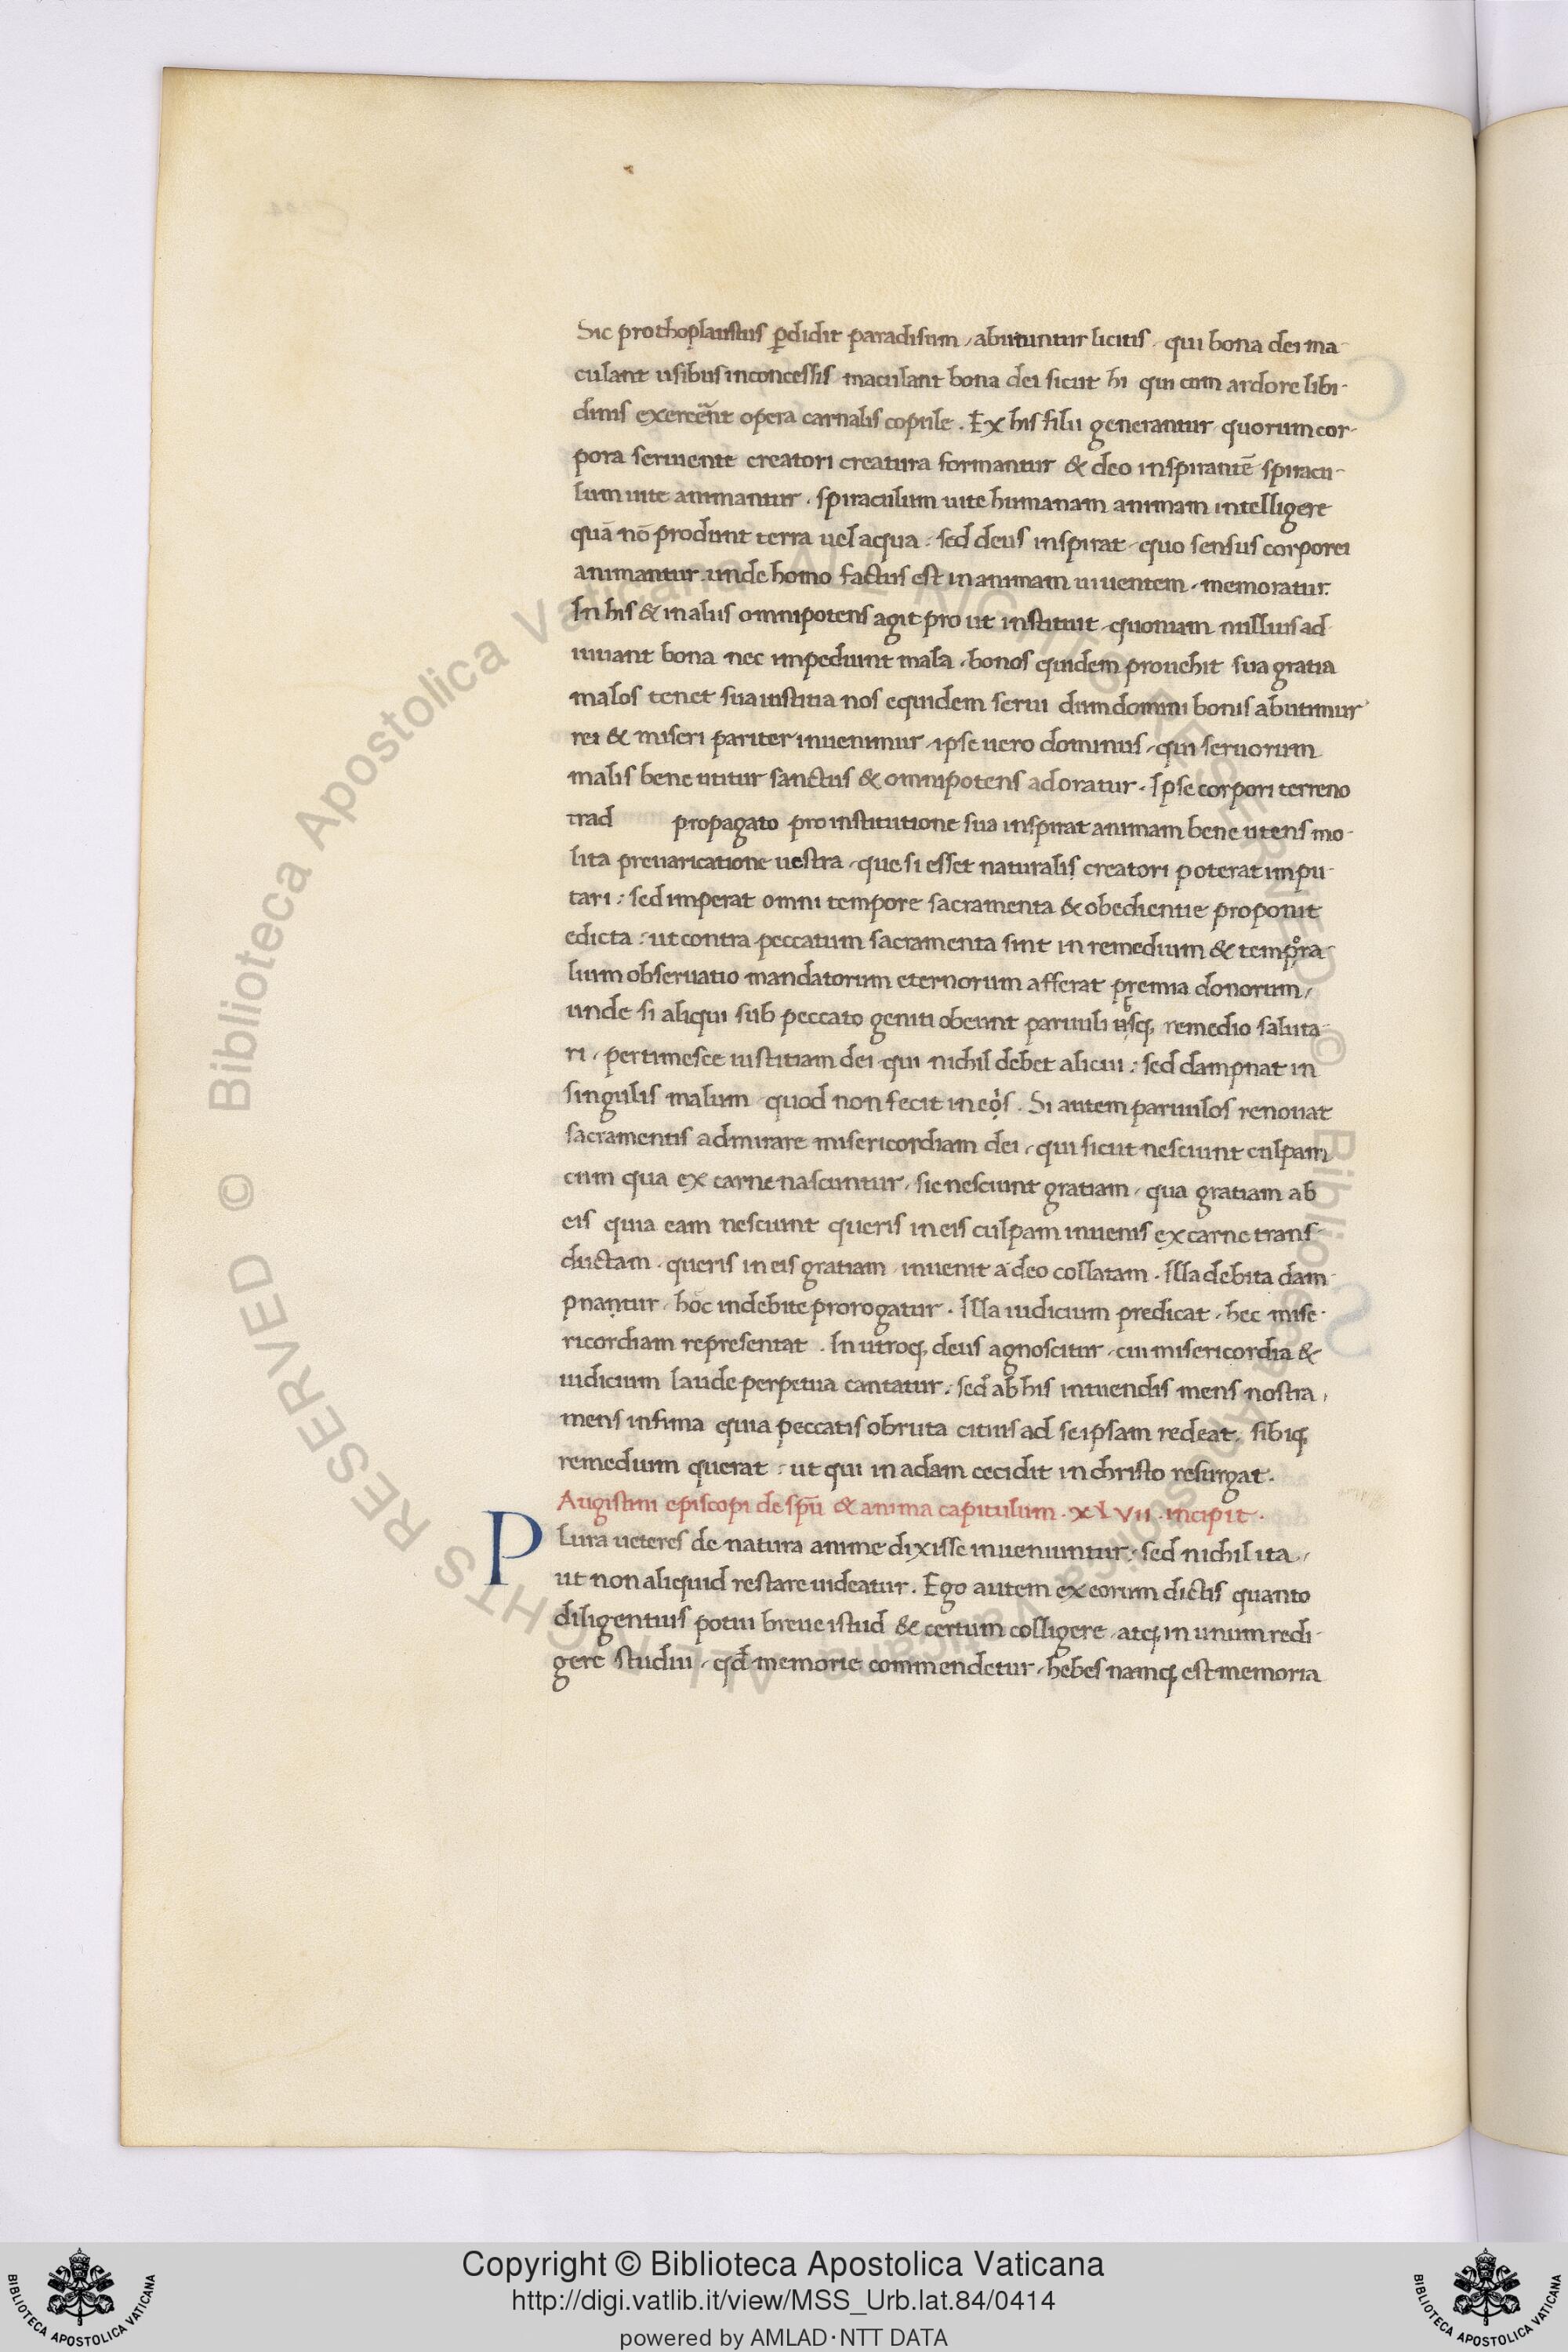 Sic prothoplaustus ꝑdidit paradisum, abutuntur licitis. qui bona dei ma-
culant usibus inconcessis maculant bona dei sicut hi qui cum ardore libi-
dinis exercent opera carnalis copule. Ex his filii generantur quorum cor-
pora seruiente creatori creatura formantur & deo inspirante spiracu-
lum uite animantur. spiraculum uite humanam animam intelligere
quā nō produnt terra uel aqua: sed deus inspirat, quo sensus corporei
animantur. unde homo factus est in animam uiuentem, memoratur.
In his & in aliis omnipotens agit pro ut instituit, quoniam nullius ad-
iuuant bona nec impediunt mala, bonos quidem prouehit sua gratia
malos tenet sua iustitia nos equidem serui dum domini bonis abutimur
rei & miseri pariter inuenimur, ipse uero dominus, qui seruorum
malis bene utitur sanctus & omnipotens adoratur. Ipse corpori terreno
trad propagato pro institutione sua inspirat animam bene utens mo-
lita preuaricatione uestra, que si esset naturalis creatori poterat impu-
tari: sed imperat omni tempore sacramenta & obedientie proponit
edicta: ut contra peccatum sacramenta sint in remedium & tempora-
lium obseruatio mandatorum eternorum afferat premia donorum,
unde si aliqui sub peccato geniti obeunt paruuli usqꝫ remedio saluta-
ri, pertimesce iustitiam dei qui nichil debet alicui: sed dampnat in
singulis malum quod non fecit in eis. Si autem paruulos renouat
sacramentis admirare misericordiam dei, qui sicut nesciunt culpam
cum qua ex carne nascuntur, sic nesciunt gratiam, qua gratiam ab
eis quia eam nesciunt queris in eis culpam inuenis ex carne trans-
ductam. queris in eis gratiam inuenit a deo collatam. Illa debita dam-
pnantur, hoc indebite prorogatur. Illa iudicium predicat, hec mise-
ricordiam representat. In utroqꝫ deus agnoscitur, cui misericordia &
iudicium laude perpetua cantatur: sed ab his intuendis mens nostra,
mens infima quia peccatis obruta citius ad se ipsam redeat. sibiqꝫ
remedium querat: ut qui in adam cecidit in christo resurgat.
Augustini episcopi de spū & anima capitulum. XLVII. incipit.
Plura ueteres de natura anime dixisse inueniuntur: sed nichil ita,
ut non aliquid restare uideatur. Ego autem ex eorum dictis quanto
diligentius potui breue istud & certum colligere, atqꝫ in unum redi-
gere studui, qđ memorie commendetur, hebes namqꝫ est memoria
Copyright © Biblioteca Apostolica Vaticana
http://digi.vatlib.it/view/MSS_Urb.lat.84/0414
powered by AMLAD·NTT DATA
BIBLIOTECA APOSTOLICA VATICANA
BIBLIOTECA APOSTOLICA VATICANA
© Biblioteca Apostolica Vaticana ALL RIGHTS RESERVED
© Biblioteca Apostolica Vaticana ALL RIGHTS RESERVED